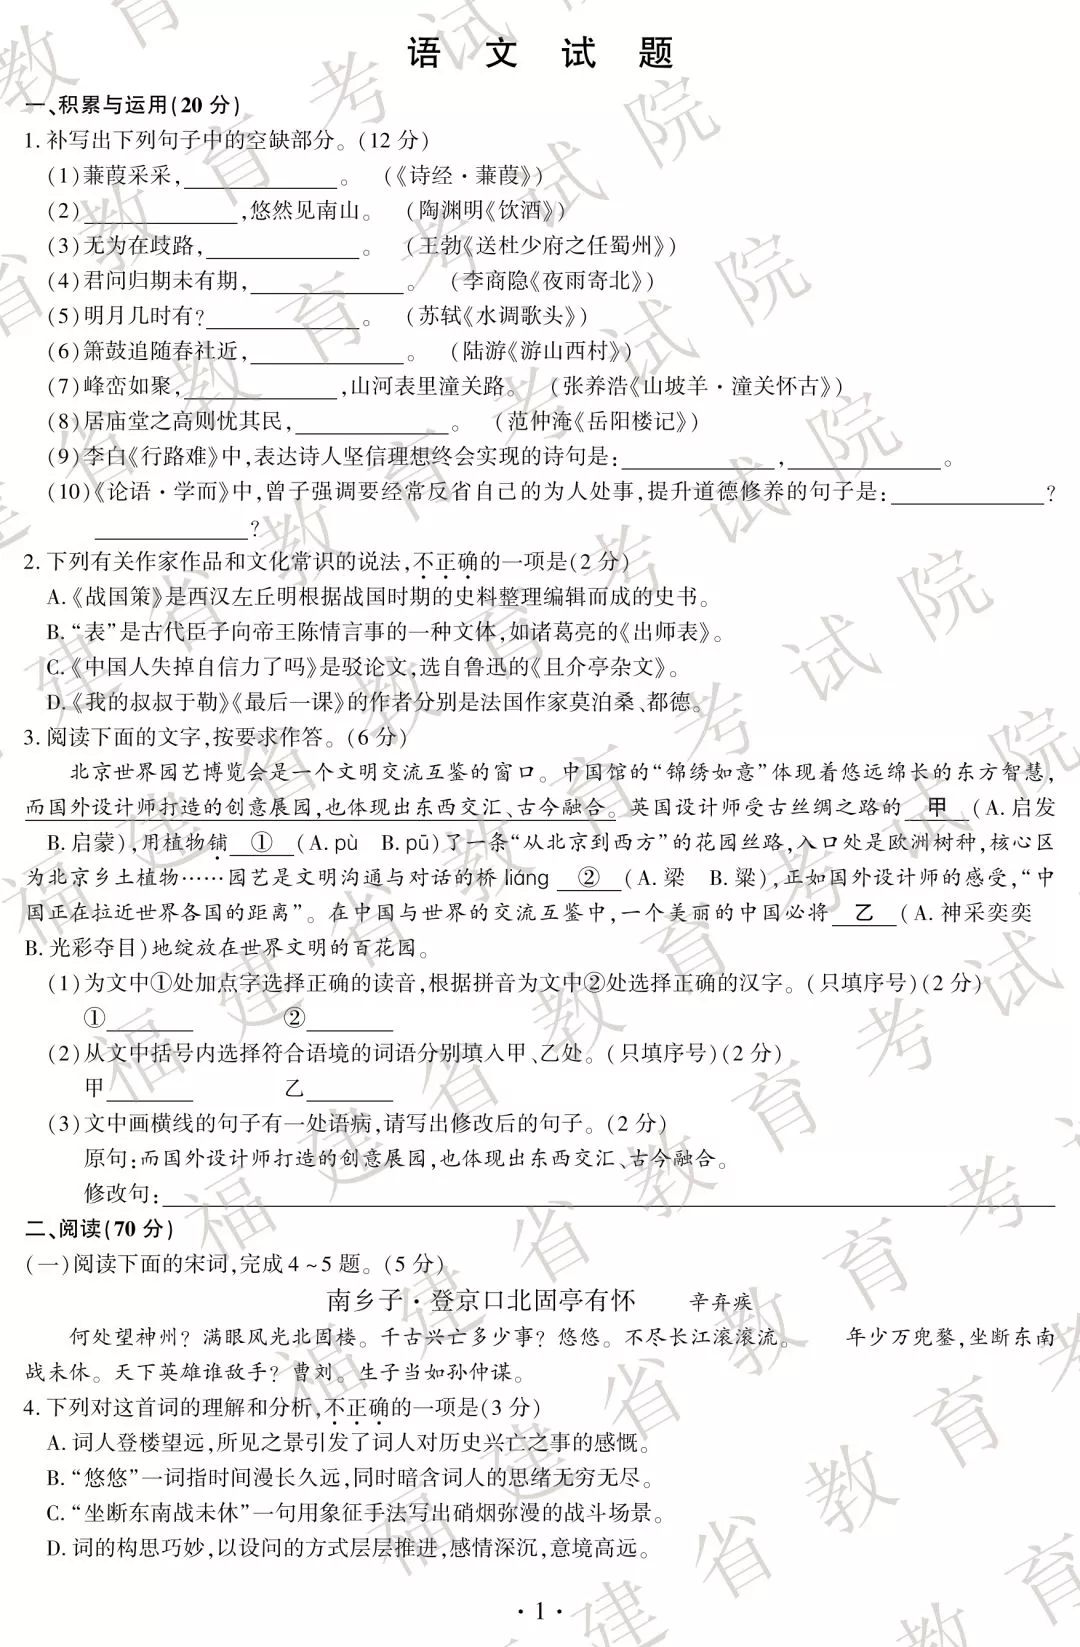 语 文 试 题
一、积累与运用(20 分)
1. 补写出下列句子中的空缺部分。(12 分)
(1)蒹葭采采,____________。 (《诗经·蒹葭》)
(2)____________,悠然见南山。 (陶渊明《饮酒》)
(3)无为在歧路,____________。 (王勃《送杜少府之任蜀州》)
(4)君问归期未有期,____________。 (李商隐《夜雨寄北》)
(5)明月几时有?____________。 (苏轼《水调歌头》)
(6)箫鼓追随春社近,____________。 (陆游《游山西村》)
(7)峰峦如聚,____________,山河表里潼关路。 (张养浩《山坡羊·潼关怀古》)
(8)居庙堂之高则忧其民,____________。 (范仲淹《岳阳楼记》)
(9)李白《行路难》中,表达诗人坚信理想终会实现的诗句是:____________,____________。
(10)《论语·学而》中,曾子强调要经常反省自己的为人处事,提升道德修养的句子是:____________?
____________?
2. 下列有关作家作品和文化常识的说法,不正确的一项是(2 分)
A.《战国策》是西汉左丘明根据战国时期的史料整理编辑而成的史书。
B. “表”是古代臣子向帝王陈情言事的一种文体,如诸葛亮的《出师表》。
C.《中国人失掉自信力了吗》是驳论文,选自鲁迅的《且介亭杂文》。
D.《我的叔叔于勒》《最后一课》的作者分别是法国作家莫泊桑、都德。
3. 阅读下面的文字,按要求作答。(6 分)
北京世界园艺博览会是一个文明交流互鉴的窗口。中国馆的“锦绣如意”体现着悠远绵长的东方智慧,
而国外设计师打造的创意展园,也体现出东西交汇、古今融合。英国设计师受古丝绸之路的 甲 (A. 启发
B. 启蒙),用植物铺 ① (A. pù B. pū)了一条“从北京到西方”的花园丝路,入口处是欧洲树种,核心区
为北京乡土植物……园艺是文明沟通与对话的桥 liáng ② (A. 梁 B. 粱),正如国外设计师的感受,“中
国正在拉近世界各国的距离”。在中国与世界的交流互鉴中,一个美丽的中国必将 乙 (A. 神采奕奕
B. 光彩夺目)地绽放在世界文明的百花园。
(1)为文中①处加点字选择正确的读音,根据拼音为文中②处选择正确的汉字。(只填序号)(2 分)
①________ ②________
(2)从文中括号内选择符合语境的词语分别填入甲、乙处。(只填序号)(2 分)
甲________ 乙________
(3)文中画横线的句子有一处语病,请写出修改后的句子。(2 分)
原句:而国外设计师打造的创意展园,也体现出东西交汇、古今融合。
修改句:________________
二、阅读(70 分)
(一)阅读下面的宋词,完成 4 ~ 5 题。(5 分)
南乡子·登京口北固亭有怀 辛弃疾
何处望神州?满眼风光北固楼。千古兴亡多少事?悠悠。不尽长江滚滚流。 年少万兜鍪,坐断东南
战未休。天下英雄谁敌手?曹刘。生子当如孙仲谋。
4. 下列对这首词的理解和分析,不正确的一项是(3 分)
A. 词人登楼望远,所见之景引发了词人对历史兴亡之事的感慨。
B. “悠悠”一词指时间漫长久远,同时暗含词人的思绪无穷无尽。
C. “坐断东南战未休”一句用象征手法写出硝烟弥漫的战斗场景。
D. 词的构思巧妙,以设问的方式层层推进,感情深沉,意境高远。
· 1 ·
福建省教育考试院